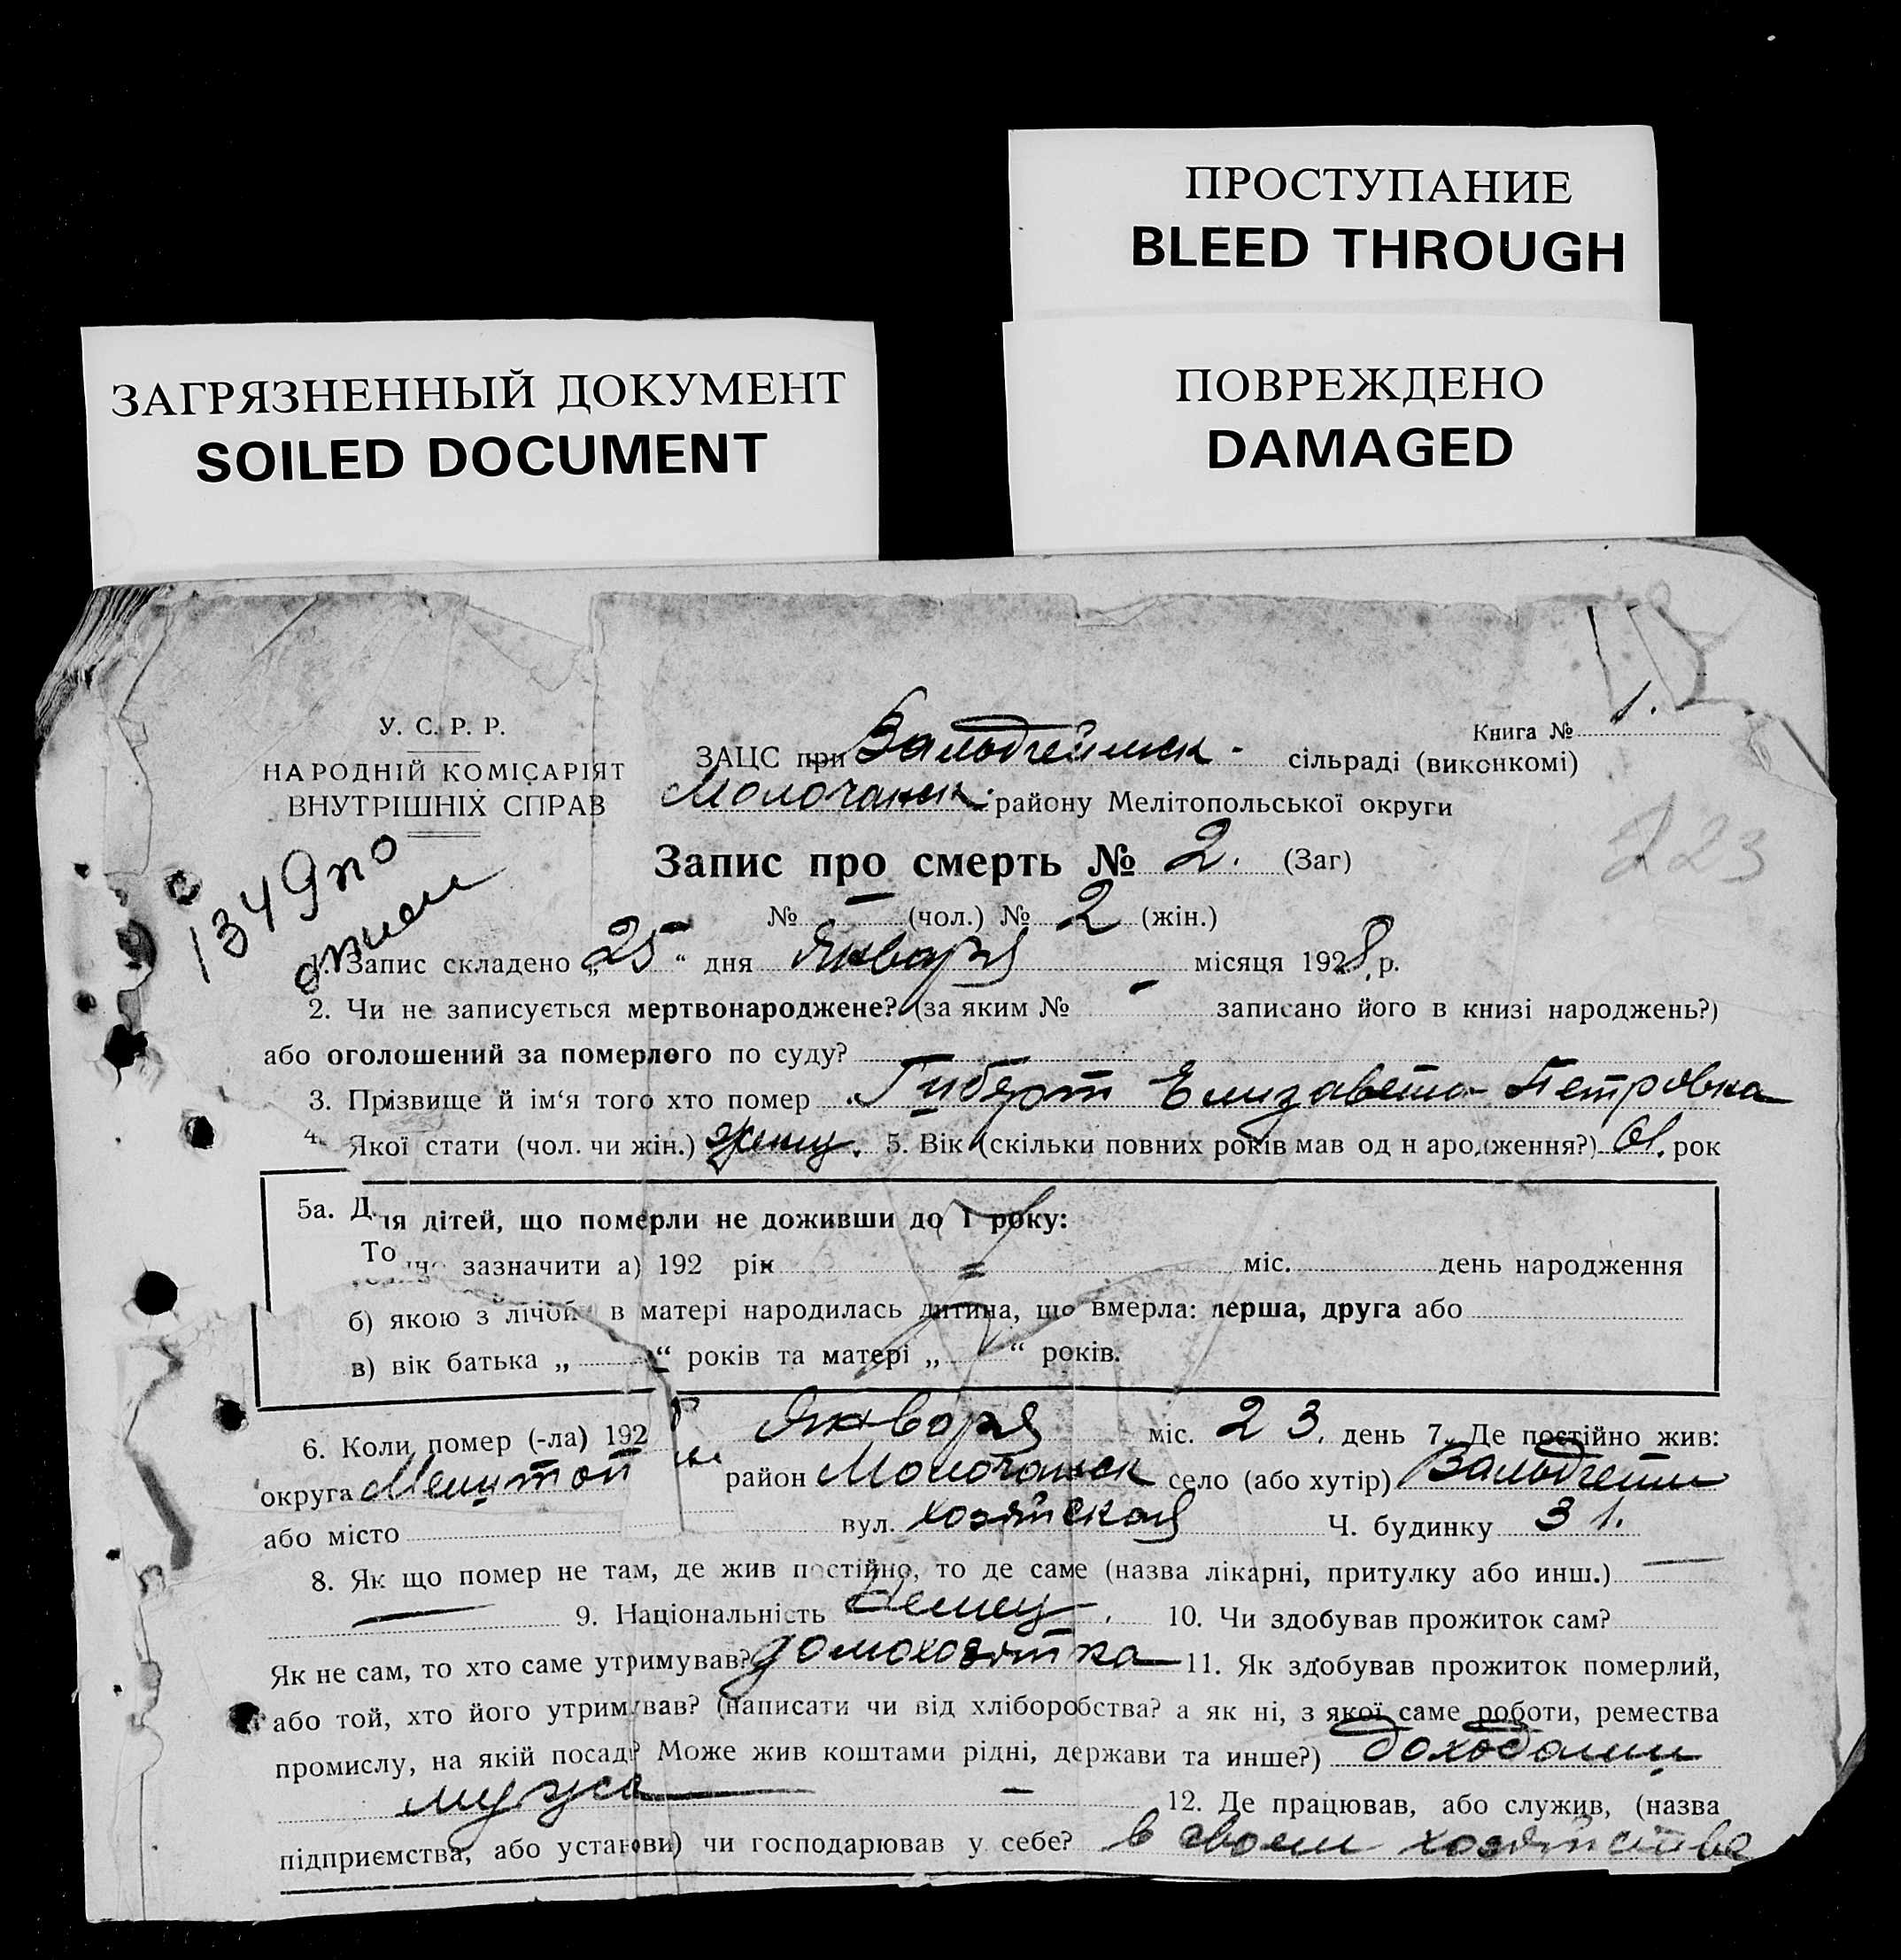 ПРОСТУПАНИЕ
BLEED THROUGH
ЗАГРЯЗНЕННЫЙ ДОКУМЕНТ
SOILED DOCUMENT
ПОВРЕЖДЕНО
DAMAGED
У. С. Р. Р.
НАРОДНІЙ КОМІСАРІЯТ
ВНУТРІШНІХ СПРАВ
Книга № 1.
ЗАЦС при Вальдгеймск - сільраді (виконкомі)
Молочанск. району Мелітопольської округи
223
1349 по
описи
Запис про смерть № 2. (Заг)
№ — (чол.) № 2 (жін.)
1. Запис складено „25“ дня Января місяця 1928 р.
2. Чи не записується мертвонароджене? (за яким № - записано його в книзі народжень?)
або оголошений за померлого по суду?
3. Прізвище й ім'я того хто помер Гиберт Елизавета Петровна
4. Якої стати (чол. чи жін.) женщ. 5. Вік (скільки повних років мав од народження?) 61. рок
5а. Для дітей, що померли не доживши до 1 року:
Точно зазначити а) 192 рік = міс. день народження
б) якою з лічби в матері народилась дитина, що вмерла: перша, друга або
в) вік батька „ “ років та матері „ “ років.
6. Коли помер (-ла) 1928 Января міс. 23. день 7. Де постійно жив:
округа Мелитоп район Молочанск село (або хутір) Вальдгейм
або місто вул. хозяйская Ч. будинку 31.
8. Як що помер не там, де жив постійно, то де саме (назва лікарні, притулку або инш.) —
— 9. Національність Немец. 10. Чи здобував прожиток сам?
Як не сам, то хто саме утримував? домохозяйка — 11. Як здобував прожиток померлий,
або той, хто його утримував? (написати чи від хліборобства? а як ні, з якої саме роботи, ремества
промислу, на якій посаді? Може жив коштами рідні, держави та инше?) доходами
мужа — — 12. Де працював, або служив, (назва
підприємства, або установи) чи господарював у себе? в своем хозяйстве